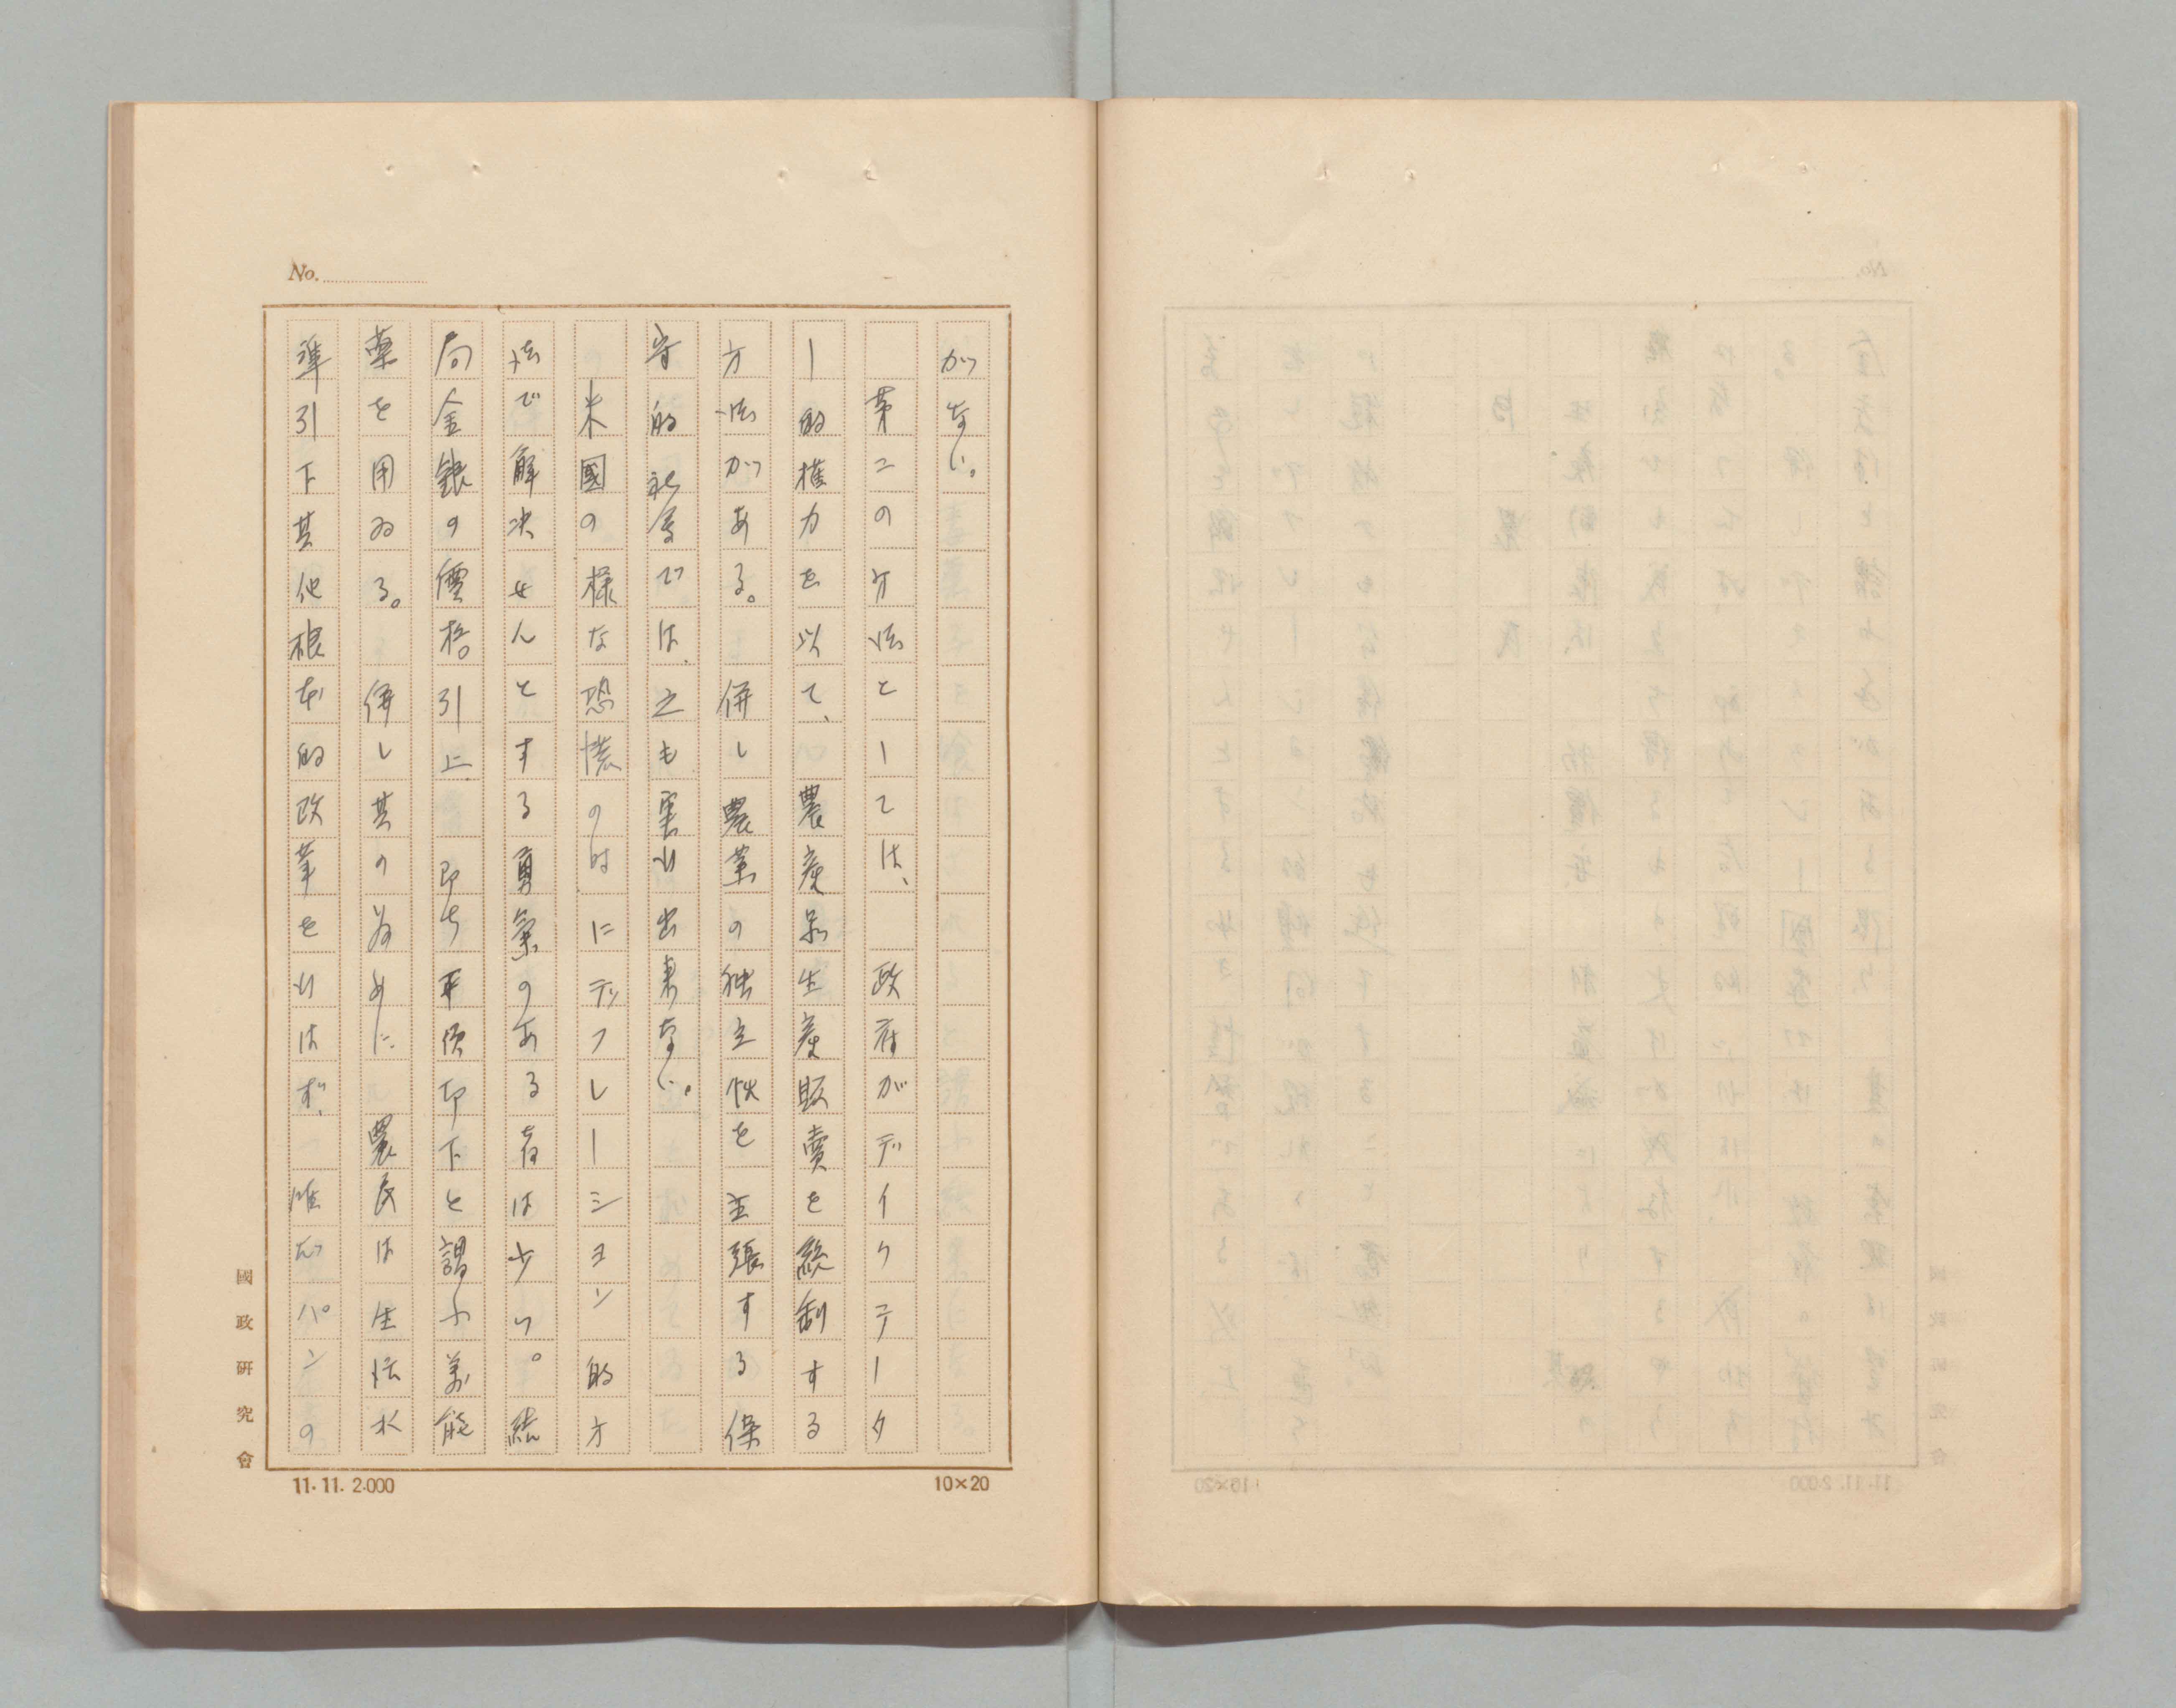 No.
がない。
第二の方法としては、　政府がディクテータ
ー的権力を以て、農産品生産販賣を統制する
方法がある。　併し農業の独立性を主張する保
守的社会では、之も実り出来ない。
米國の様な恐慌の時にデッフレーション的方
法で解決せんとする勇氣のある者は少い。結
局金銀の價格引上　即ち平價切下と謂ふ萬能
薬を用ゐる。　併し其の為めに　農民は生活水
準引下其他根本的改革を　はず、唯だパンの
國政研究會
11.11. 2.000
10×20